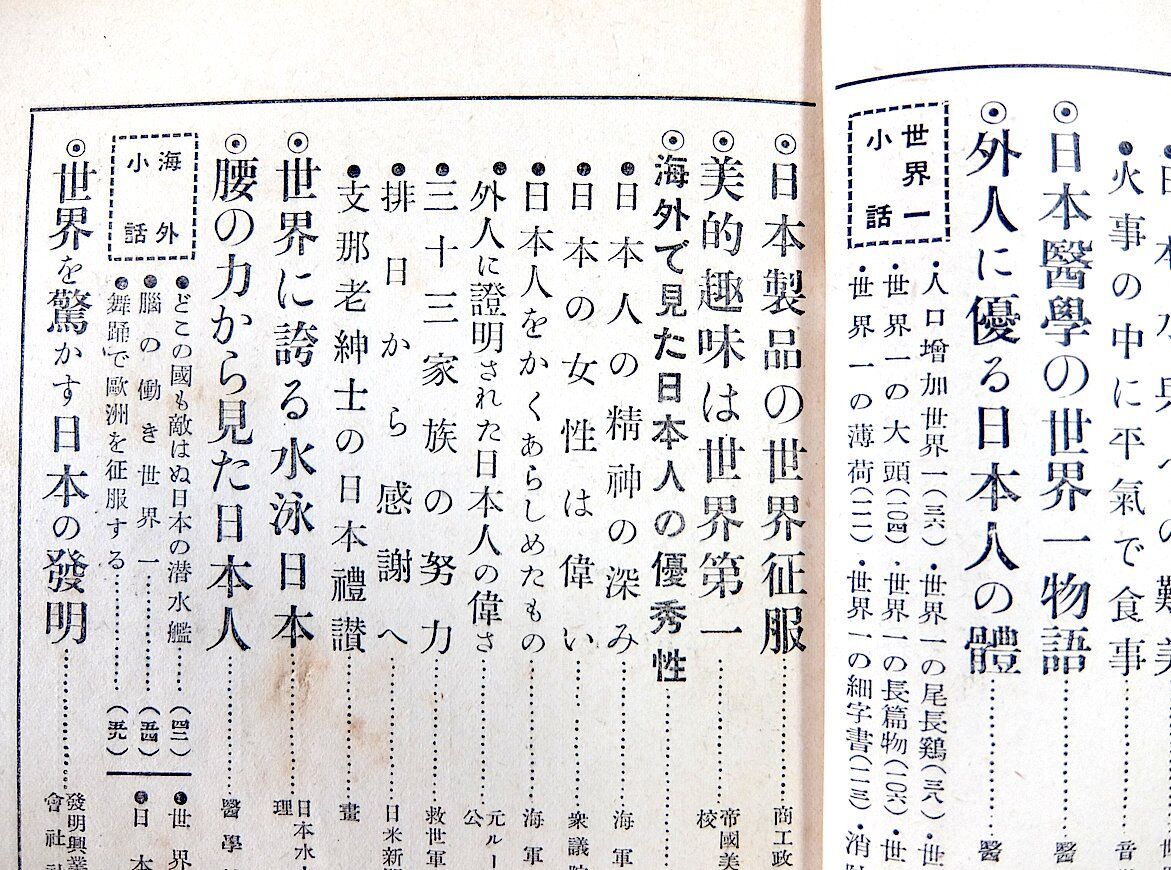 火事の中に平氣で食事
◉日本醫學の世界一物語……醫
◉外人に優る日本人の體……醫
世界一
小話
・人口增加世界一(三六)・世界一の尾長鷄(三八)・世
・世界一の大頭(一〇四)・世界一の長篇物(一〇六)・世
・世界一の薄荷(一一一)・世界一の細字書(一一三)・消
◉日本製品の世界征服……商工政
◉美的趣味は世界第一……帝國美
校
◉海外で見た日本人の優秀性……
●日本人の精神の深み……海軍
●日本の女性は偉い……衆議院
●日本人をかくあらしめたもの……海軍
●外人に證明された日本人の偉さ……元ルー
公
●三十三家族の努力……救世軍
●排日から感謝へ……日米新
●支那老紳士の日本禮讃……畫
◉世界に誇る水泳日本……日本水
理
◉腰の力から見た日本人……醫學
海外
小話
●どこの國も敵はぬ日本の潜水艦……(四二)
●腦の働き世界一……(五四)
●舞踊で歐洲を征服する……(五九)
●世界
●日本
◉世界を驚かす日本の發明……發明興業
會社